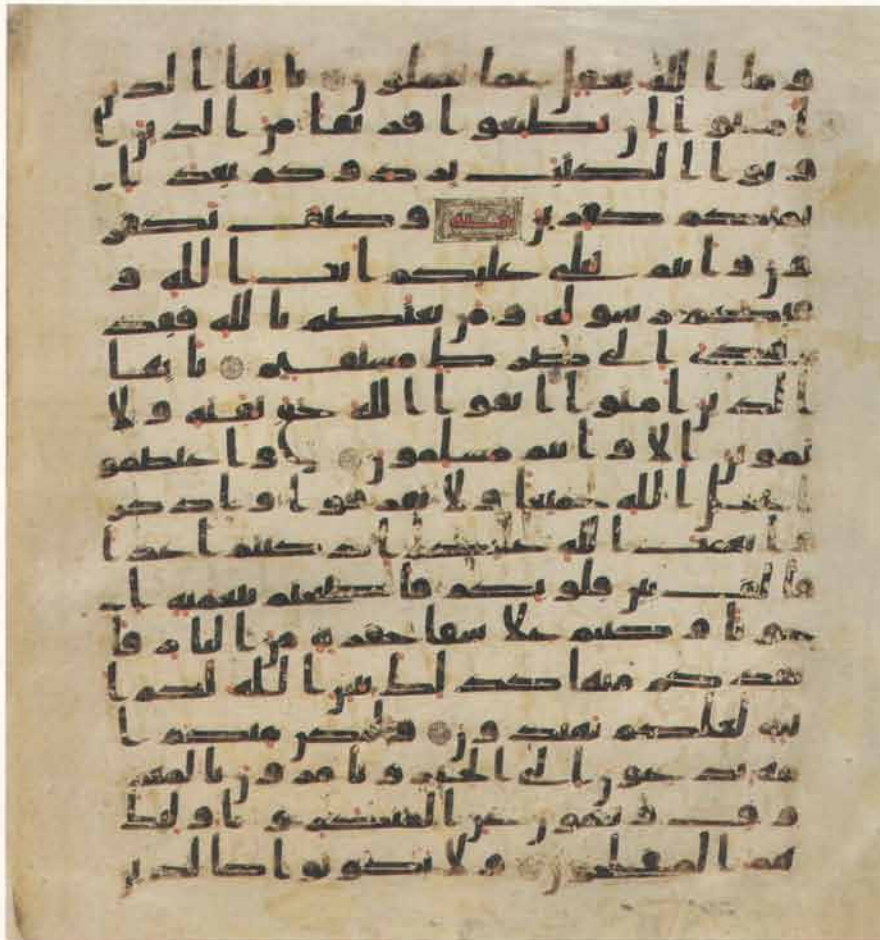 وما الله بغفل عما تعملون يايها الذين
امنوا ان تطيعوا فريقا من الذين ا
وتوا الكتب يردوكم بعد ا
يمنكم كفرين وكيف تكفر
ون وانتم تتلى عليكم ايت الله و
فيكم رسوله ومن يعتصم بالله فقد
هدى الى صرط مستقيم يايها
الذين امنوا اتقوا الله حق تقته ولا
تموتن الا وانتم مسلمون واعتصمو
ا بحبل الله جميعا ولا تفرقوا واذكر
وا نعمت الله عليكم اذ كنتم اعدا
فالف بين قلوبكم فاصبحتم بنعمته ا
خونا وكنتم على شفا حفرة من النار فا
نقذكم منها كذلك يبين الله لكم ا
يته لعلكم تهتدون ولتكن منكم ا
مة يدعون الى الخير ويامرون بالمعر
وف وينهون عن المنكر واولئك
هم المفلحون ولا تكونوا كالذين